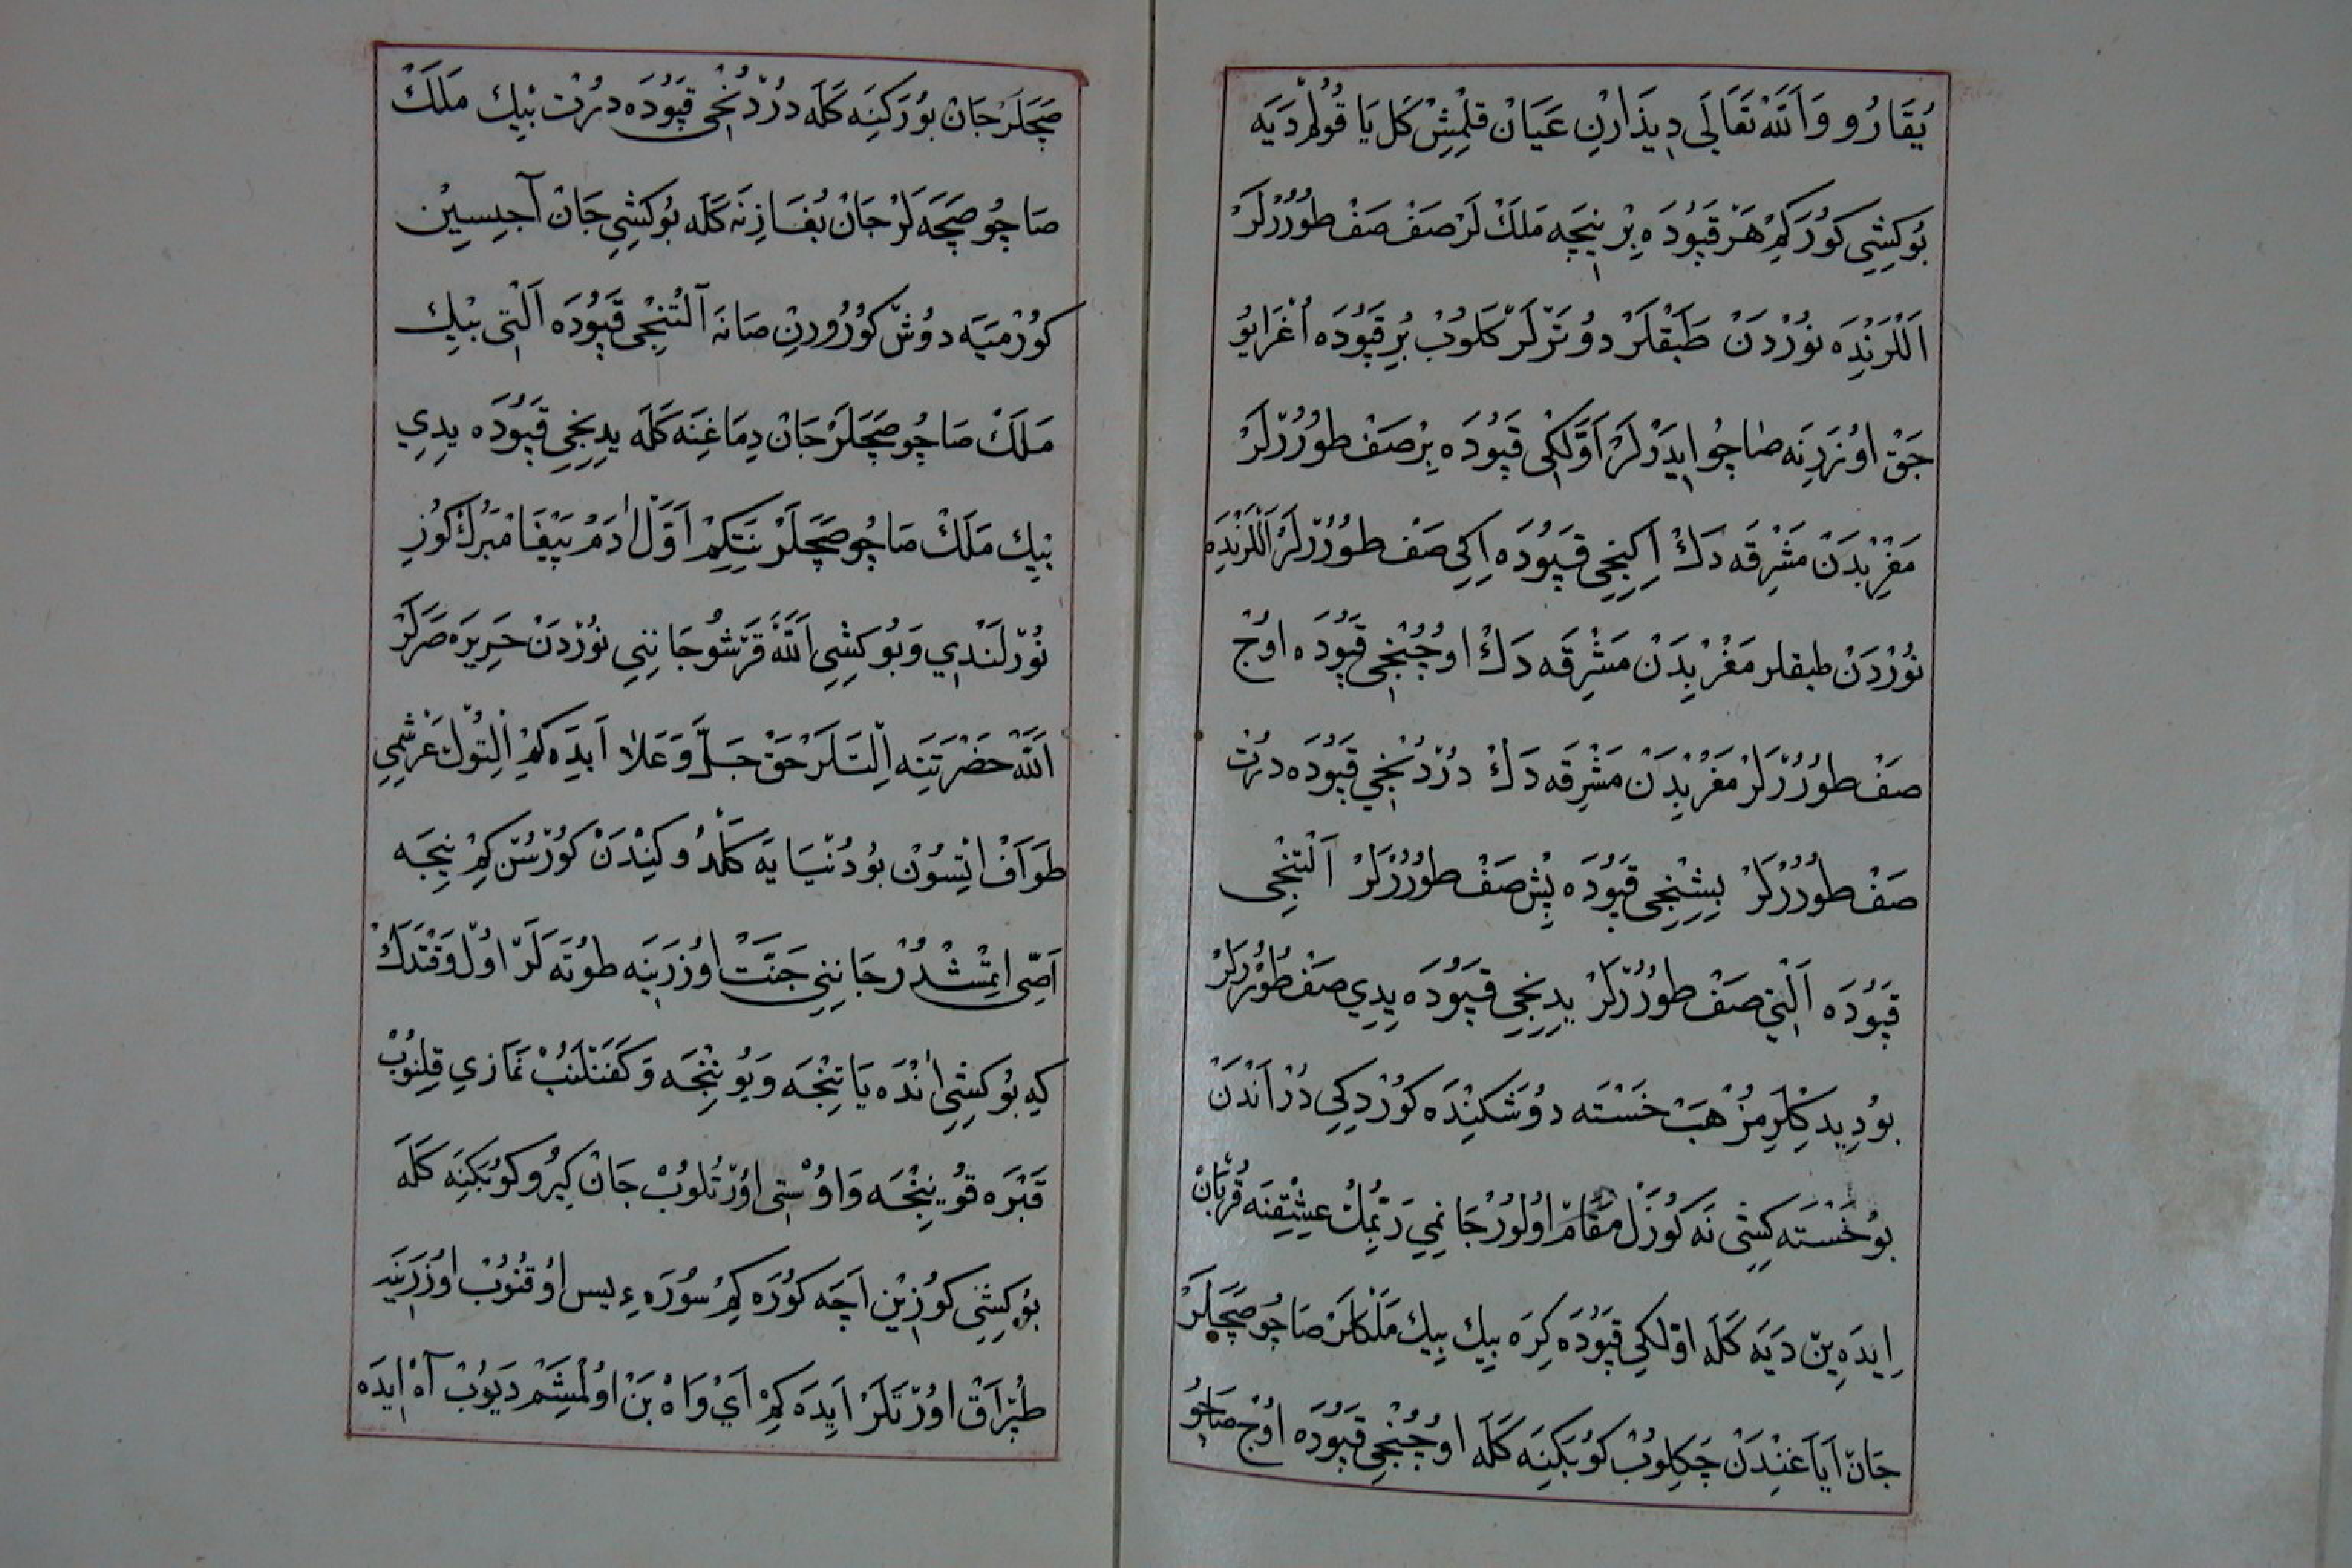 يُقَارُو وَاَللّٰه تَعَالَى دِيذَارِنِ عَيَانْ قِلْمِشْ كَل يَا قُولُمْ دَيَه
بُو كِشِي كُورَر كِمْ هَرْ قَپُودَه بِرْ نِيچَه مَلَكْ لَرْ صَفْ صَفْ طُورُرْلَرْ
اَللَرِنْدَه نُورْدَنْ طَبَقْلَرْ دُوتَرْلَرْ كَلُوبْ بُرِ قَپُودَه اُغْرَايُو
جَقْ اوُزَرِنَه صَاچُو ايدَرْلَرْ اَوَّلْكِي قَپُودَه بِرْ صَفْ طُورُرْلَرْ
مَغْرِبْدَنْ مَشْرِقَه دَكْ اِكِنْجِي قَپُودَه اِكِي صَفْ طُورُرْلَرْ اَللَرِنْدَه
نُورْدَنْ طبقلر مَغْرِبِدَنْ مَشْرِقَه دَكْ اوُچُنْجِي قَپُودَه اوُچْ
صَفْ طُورُرْلَرْ مَغْرِبْدَنْ مَشْرِقَه دَكْ دُرْدُنْجِي قَپُودَه دُرْتْ
صَفْ طُورُرْلَرْ بِشِنْجِي قَپُودَه بِشْ صَفْ طُورُرْلَرْ اَلْتِنْجِي
قَپُودَه اَلْتِي صَفْ طُورُرْلَرْ يِدِنْجِي قَپُودَه يِدِي صَفْ طُورُرْلَرْ
بُو دِيدِكْلَرِمُزْ هَبْ خَسْتَه دوُشَكِنْدَه كُورْدِكِي دُرْ اَنْدَنْ
بُو خَسْتَه كِشِي نَه كُوزَلْ مَقَامْ اوُلُورْ جَانِمِي رَبِّمِكْ عِشْقِنَه قُرْبَانْ
اِيدَه يِنْ دَيَه كَلَه اوّلْكِي قَپُودَه كِرَه بِيك بِيك مَلَكْلَرْ صَاچُو صَچَلَرْ
جَانْ اَيَاغِنْدَنْ چَكِلُوبْ كُوبَكِنَه كَلَه اوُچُنْجِي قَپُودَه اوُچْ صَاچُو
صَچَلَرْ جَانْ بُورَكِنَه كَلَه دُرْدُنْجِي قَپُودَه دُرْتْ بِيك مَلَكْ
صَاچُو صَچَه لَرْ جَانْ بُغَازِنَه كَلَه بُو كِشِي جَانْ آجِيسِينْ
كُورْمَيَه دوُشْ كُورُورِنْ صَانَه آلْتُنْجِي قَپُودَه اَلْتِي بِيك
مَلَكْ صَاچُو صَچَلَرْ جَانْ دِمَاغِنَه كَلَه يِدِنْجِي قَپُودَه يِدِي
بِيك مَلَكْ صَاچُو صَچَلَرْ نِتَكِمْ اَوَّلْ ادَمْ پَيْغَامْبَرُكْ كُوزِ
نُورْلَنْدِي وَبُو كِشِي اَللّٰه قَرْشُو جَانِنِي نُورْدَنْ حَرِيرَه صَرَلَرْ
اَللّٰه حَضْرَتِنَه اِلْتَلَرْ حَقْ جَلَّ وَعَلَا اَيِدَه كِمْ اِلْتُوكْ عَرْشِمِي
طَوَافْ اِتْسُونْ بُو دُنْيَايَه كَلْدُوكِنْدَنْ كُورْسُنْ كِمْ نِيجَه
اَصِّى اِتْمِشْدُرْ جَانِنِي جَنَّتْ اوُزَرِينَه طُوتَه لَرْ اوُلْ وَقْتْدَكْ
كِه بُو كِشِي اَنْدَه يَاتِنْجَه وَيُونِنْجَه وَكَفَنْلَنُبْ نَمَازِي قِلِنُوبْ
قَبْرَه قُويِنْجَه وَاوُسْتِي اوُرْتُلُوبْ جَانْ كِيرُو كُوبَكِنَه كَلَه
بُو كِشِي كُوزِينْ اَچَه كُورَه كِمْ سُورَهءِ يس اوُقُنُوبْ اوُزَرِينَه
طُپْرَاقْ اوُرْتَلَرْ اَيِدَه كِمْ اَيْ وَاهْ بَنْ اوُلْمِشَمْ دَيُوبْ آهْ ايدَه